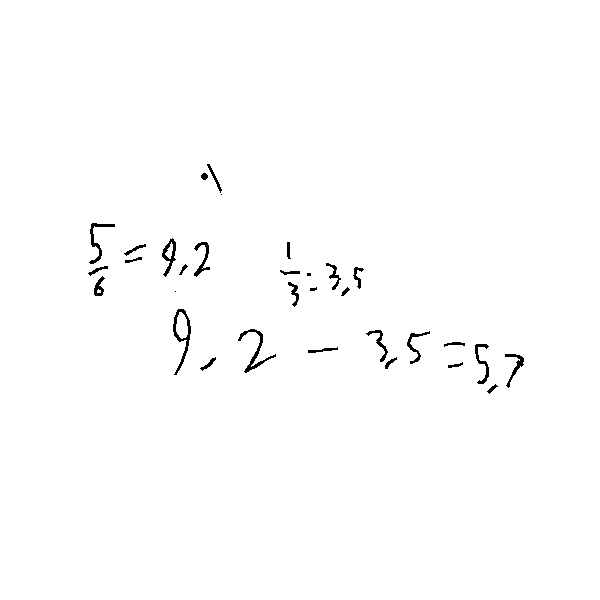 5/6 = 9,2 1/3 = 3,5
9,2 - 3,5 = 5,7